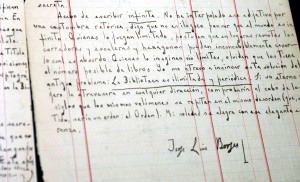 secreta.
Acabo de escribir infinita. No he interpolado ese adjetivo por
una costumbre retórica; digo que no es ilógico pensar que el mundo es in-
finito. Quienes lo juzgan limitado, postulan que en lugares remotos los
corredores y escaleras y hexágonos pueden inconcebiblemente cesar
lo cual es absurdo. Quienes lo imaginan sin límites, olvidan que los tiene
el número posible de libros. Yo me atrevo a insinuar esta solución del
antiguo problema: La Biblioteca es ilimitada y periódica. Si un eterno
viajero la atravesara en cualquier dirección, comprobaría al cabo de los
siglos que los mismos volúmenes se repiten en el mismo desorden (que, repe-
tido, sería un orden: el Orden). Mi soledad se alegra con esa elegante es-
peranza.
Jorge Luis Borges